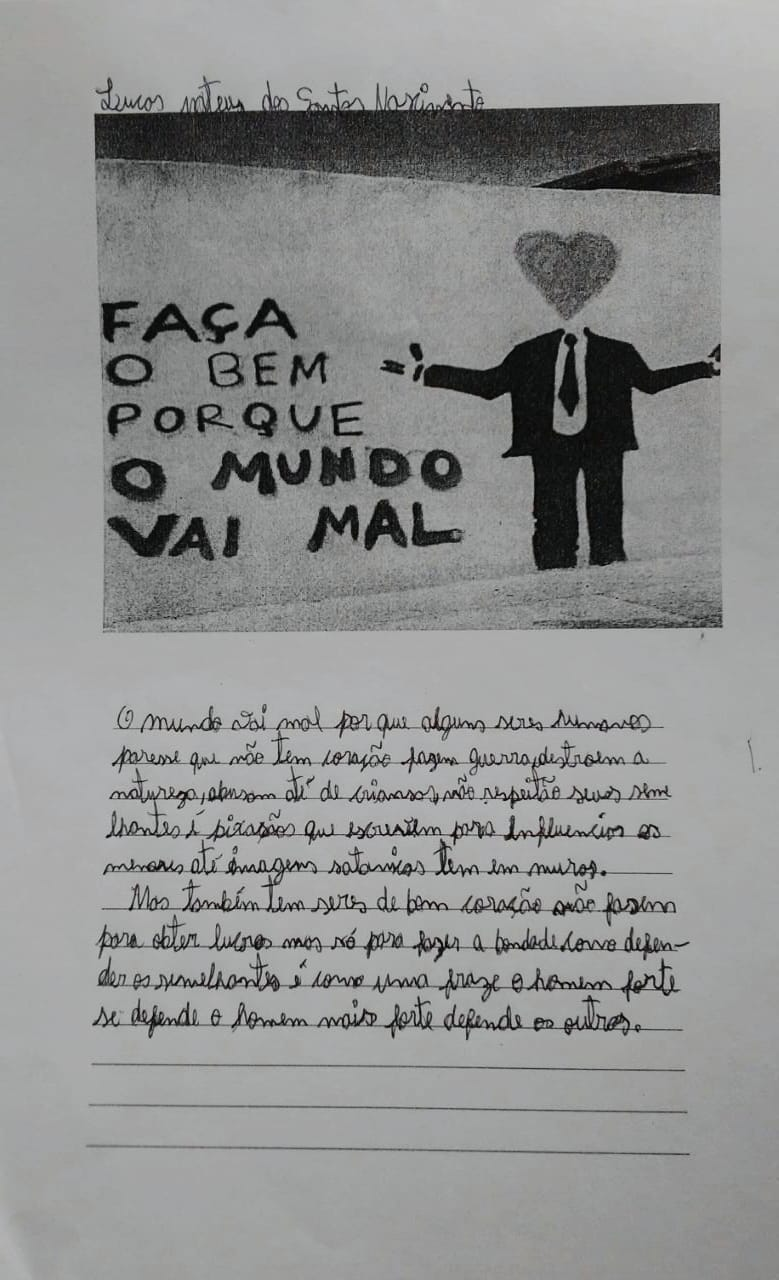 Lucas mateus dos Santos Nascimento
FAÇA
O BEM
PORQUE
O MUNDO
VAI MAL
O mundo vai mal por que alguns seres humanos
paresse que não tem coração fazem guerra, destroem a
natureza, abusam até de crianças, não respeitão seus seme
lhantes é pixasãos que escrevem para influencios os
menores até imagens satanicas tem em muros.
Mas também tem seres de bom coração não fazem
para obter lucros mas só para fazer a bondade como defen-
der os semelhantes é como uma fraze o homem forte
se defende o homem mais forte defende os outros.